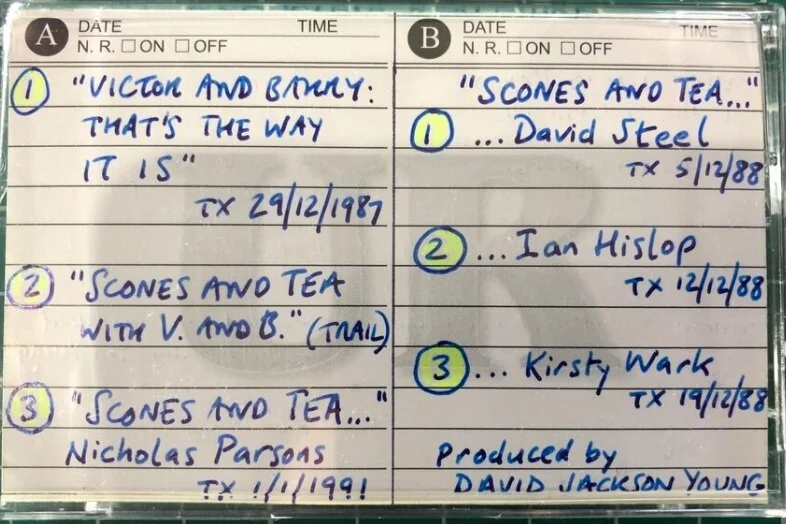 A DATE TIME
N. R. ☐ ON ☐ OFF
① "VICTOR AND BARRY:
THAT'S THE WAY
IT IS"
TX 29/12/1987
② "SCONES AND TEA
WITH V. AND B." (TRAIL)
③ "SCONES AND TEA..."
Nicholas Parsons
TX 1/1/1991
B DATE TIME
N. R. ☐ ON ☐ OFF
"SCONES AND TEA..."
① ...David Steel
TX 5/12/88
② ...Ian Hislop
TX 12/12/88
③ ... Kirsty Wark
TX 19/12/88
Produced by
DAVID JACKSON YOUNG
UR